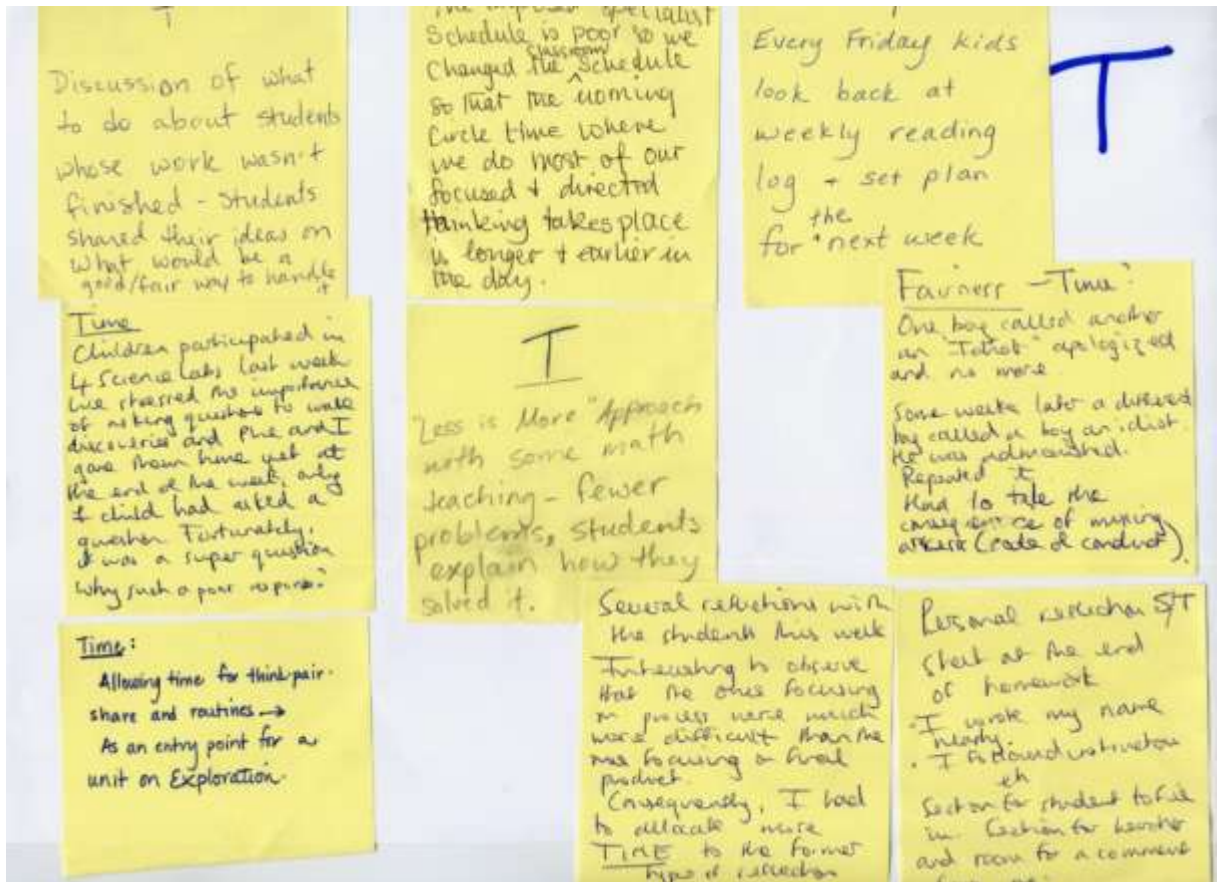 T
Discussion of what
to do about students
whose work wasn't
finished - students
shared their ideas on
what would be a
good/fair way to handle
it
The imposed specialist
Schedule is poor so we
changed the classroom schedule
so that the morning
Circle time where
we do most of our
focused + directed
thinking takes place
is longer + earlier in
the day.
Every Friday kids
look back at
weekly reading
log + set plan
for the next week
T
Time
Children participated in
4 Science Labs last week
We stressed the importance
of asking questions to make
discoveries and and I
gave them time yet at
the end of the week, only
1 child had asked a
question. Fortunately,
it was a super question
Why such a poor response?
T
"Less is More" Approach
with some math
teaching - fewer
problems, students
explain how they
solved it.
Fairness - Time?
One boy called another
an "Idiot" apologized
and no more.
Some weeks later a different
boy called a boy an idiot.
He was admonished.
Repeated it
Had to take the
consequence of missing
(code of conduct).
Time:
Allowing time for think pair.
share and routines →
As an entry point for a
unit on Exploration.
Several reflections with
the students this week
Interesting to observe
that the ones focusing
on process were much
more difficult than the
ones focusing on final
product.
Consequently, I had
to allocate more
TIME to the former
type of reflection
Personal reflection S/T
sheet at the end
of homework
· I wrote my name
neatly.
· I followed instructions
Section for student to fill
in. Section for teacher
and room for a comment